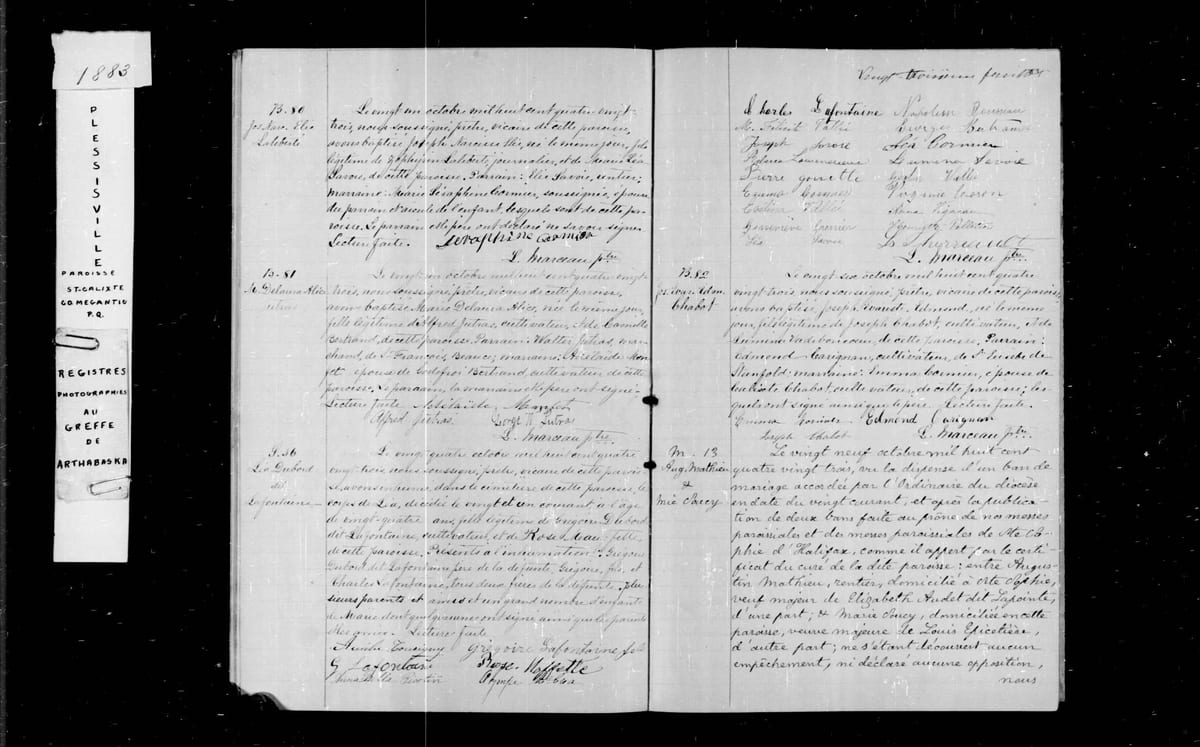 1883
PLESSISVILLE
PAROISSE
ST. CALIXTE
CO. MEGANTIC
P.Q.
REGISTRES
PHOTOGRAPHIES
AU
GREFFE
DE
ARTHABASKA
B. 80
Jos. Narc. Elie
Laliberté
Le vingt un octobre mil huit cent quatre vingt-
trois, nous soussigné, prêtre, vicaire de cette paroisse,
avons baptisé Joseph Narcisse Elie, né le même jour, fils
légitime de Zéphyrin Laliberté, journalier, et de Marie Léa
Savoie, de cette paroisse. Parrain: Elie Savoie, rentier;
marraine: Marie Séraphine Cormier, soussignée, épouse
du parrain et aieule de l'enfant, lesquels sont de cette pa-
roisse. Le parrain et le père ont déclaré ne savoir signer.
Lecture faite.
Séraphine Cormier
L. Marceau ptre
B. 81
M. Delaura Alice
Jutras
Le vingt un octobre mil huit cent quatre vingt
trois, nous soussigné, prêtre, vicaire de cette paroisse,
avons baptisé Marie Delaura Alice, née le même jour,
fille légitime d'Alfred Jutras, cultivateur, & de Camille
Bertrand, de cette paroisse. Parrain: Walter Jutras, mar-
chand, de St. François, Beauce; marraine: Adélaïde
épouse de Godefroi Bertrand, cultivateur de cette
paroisse. Le parrain, la marraine et le père ont signé.
Lecture faite
Alfred Jutras.
L. Marceau ptre
S. 36
Léa Dubord
dit
Lafontaine
Le vingt quatre octobre mil huit cent quatre
vingt trois, nous soussigné, prêtre, vicaire de cette parois-
se, avons inhumé, dans le cimetière de cette paroisse, le
corps de Léa, décédée le vingt et un courant, à l'âge
de vingt-quatre ans, fille légitime de Grégoire Dubord
dit Lafontaine, cultivateur, et de Rose
de cette paroisse. Présents à l'inhumation: Grégoire
Dubord dit Lafontaine père de la défunte, Grégoire, fils, et
Charles Lafontaine, tous deux frères de la défunte, plu-
sieurs parents et amis et un grand nombre d'enfants
de Marie dont quelques unes ont signé ainsi que les parents
& les amis. Lecture faite
Grégoire Lafontaine fils
G Lafontaine
Vingt troisième feuillet
Charles Lafontaine
Léa Cormier
Joseph Savoie
Pierre
Emma
Virginie
Geneviève Cormier
Léa Savoie
L. Marceau ptre
B. 82
Jos. Evar. Edm.
Chabot
Le vingt six octobre mil huit cent quatre
vingt trois nous soussigné, prêtre, vicaire de cette paroisse,
avons baptisé Joseph Evariste Edmond, né le même
jour, fils légitime de Joseph Chabot, cultivateur, & de
Vadeboncoeur, de cette paroisse, Parrain:
Edmond Carignan, cultivateur, de St. Eusèbe de
Stanfold: marraine: Emma Cormier, épouse de
Calixte Chabot, cultivateur, de cette paroisse; les-
quels ont signé ainsi que le père. Lecture faite.
Emma Cormier Edmond Carignan
Joseph Chabot L. Marceau ptre
M. 13
Aug. Mathieu
&
Mie Courcy
Le vingt neuf octobre mil huit cent
quatre vingt trois, vu la dispense d'un ban de
mariage accordée par l'Ordinaire du diocèse
en date du vingt courant, et après la publica-
tion de deux bans faite au prône de nos messes
paroissiales et des messes paroissiales de Ste So-
phie d'Halifax, comme il appert par le certi-
ficat du curé de la dite paroisse: entre Augus-
tin Mathieu, rentier, domicilié à Ste Sophie,
veuf majeur de Elizabeth Audet dit Lapointe,
d'une part, & Marie Courcy, domiciliée en cette
paroisse, veuve majeure de Louis
d'autre part; ne s'étant découvert aucun
empêchement, ni déclaré aucune opposition,
nous